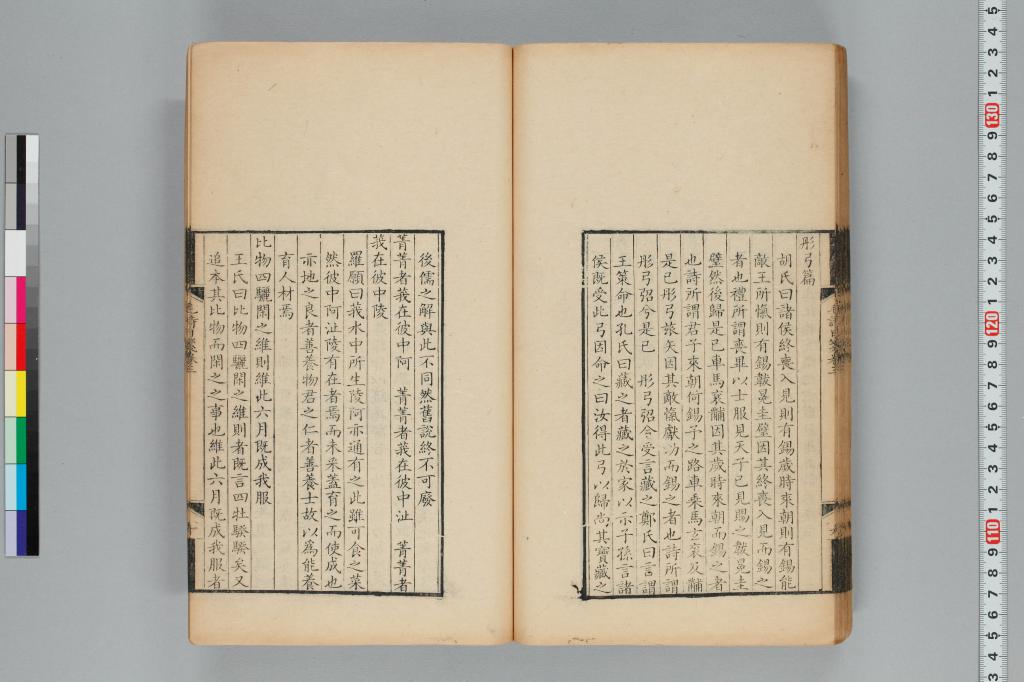 彤弓篇
胡氏曰諸侯終喪入見則有錫歲時來朝則有錫能
敵王所愾則有錫韍冕圭璧因其終喪入見而錫之
者也禮所謂喪畢以士服見天子已見賜之韍冕圭
璧然後歸是已車馬袞黼因其歲時來朝而錫之者
也詩所謂君子來朝何錫予之路車乘馬玄袞及黼
是已彤弓旅矢因其敵愾獻功而錫之者也詩所謂
彤弓弨兮是已 彤弓弨兮受言藏之鄭氏曰言謂
王策命也孔氏曰藏之者藏之於家以示子孫言諸
侯既受此弓因命之曰汝得此弓以歸尚其寶藏之
後儒之解與此不同然舊說終不可廢
菁菁者莪在彼中阿 菁菁者莪在彼中沚 菁菁者
莪在彼中陵
羅願曰莪水中所生陵阿亦通有之此雖可食之菜
然彼中阿沚陵有在者焉而未采蓋育之而使成也
亦地之良者善養物君之仁者善養士故以為能養
育人材焉
比物四驪閑之維則維此六月既成我服
王氏曰比物四驪閑之維則者既言四牡騤騤矣又
追本其比物而閑之之事也維此六月既成我服者